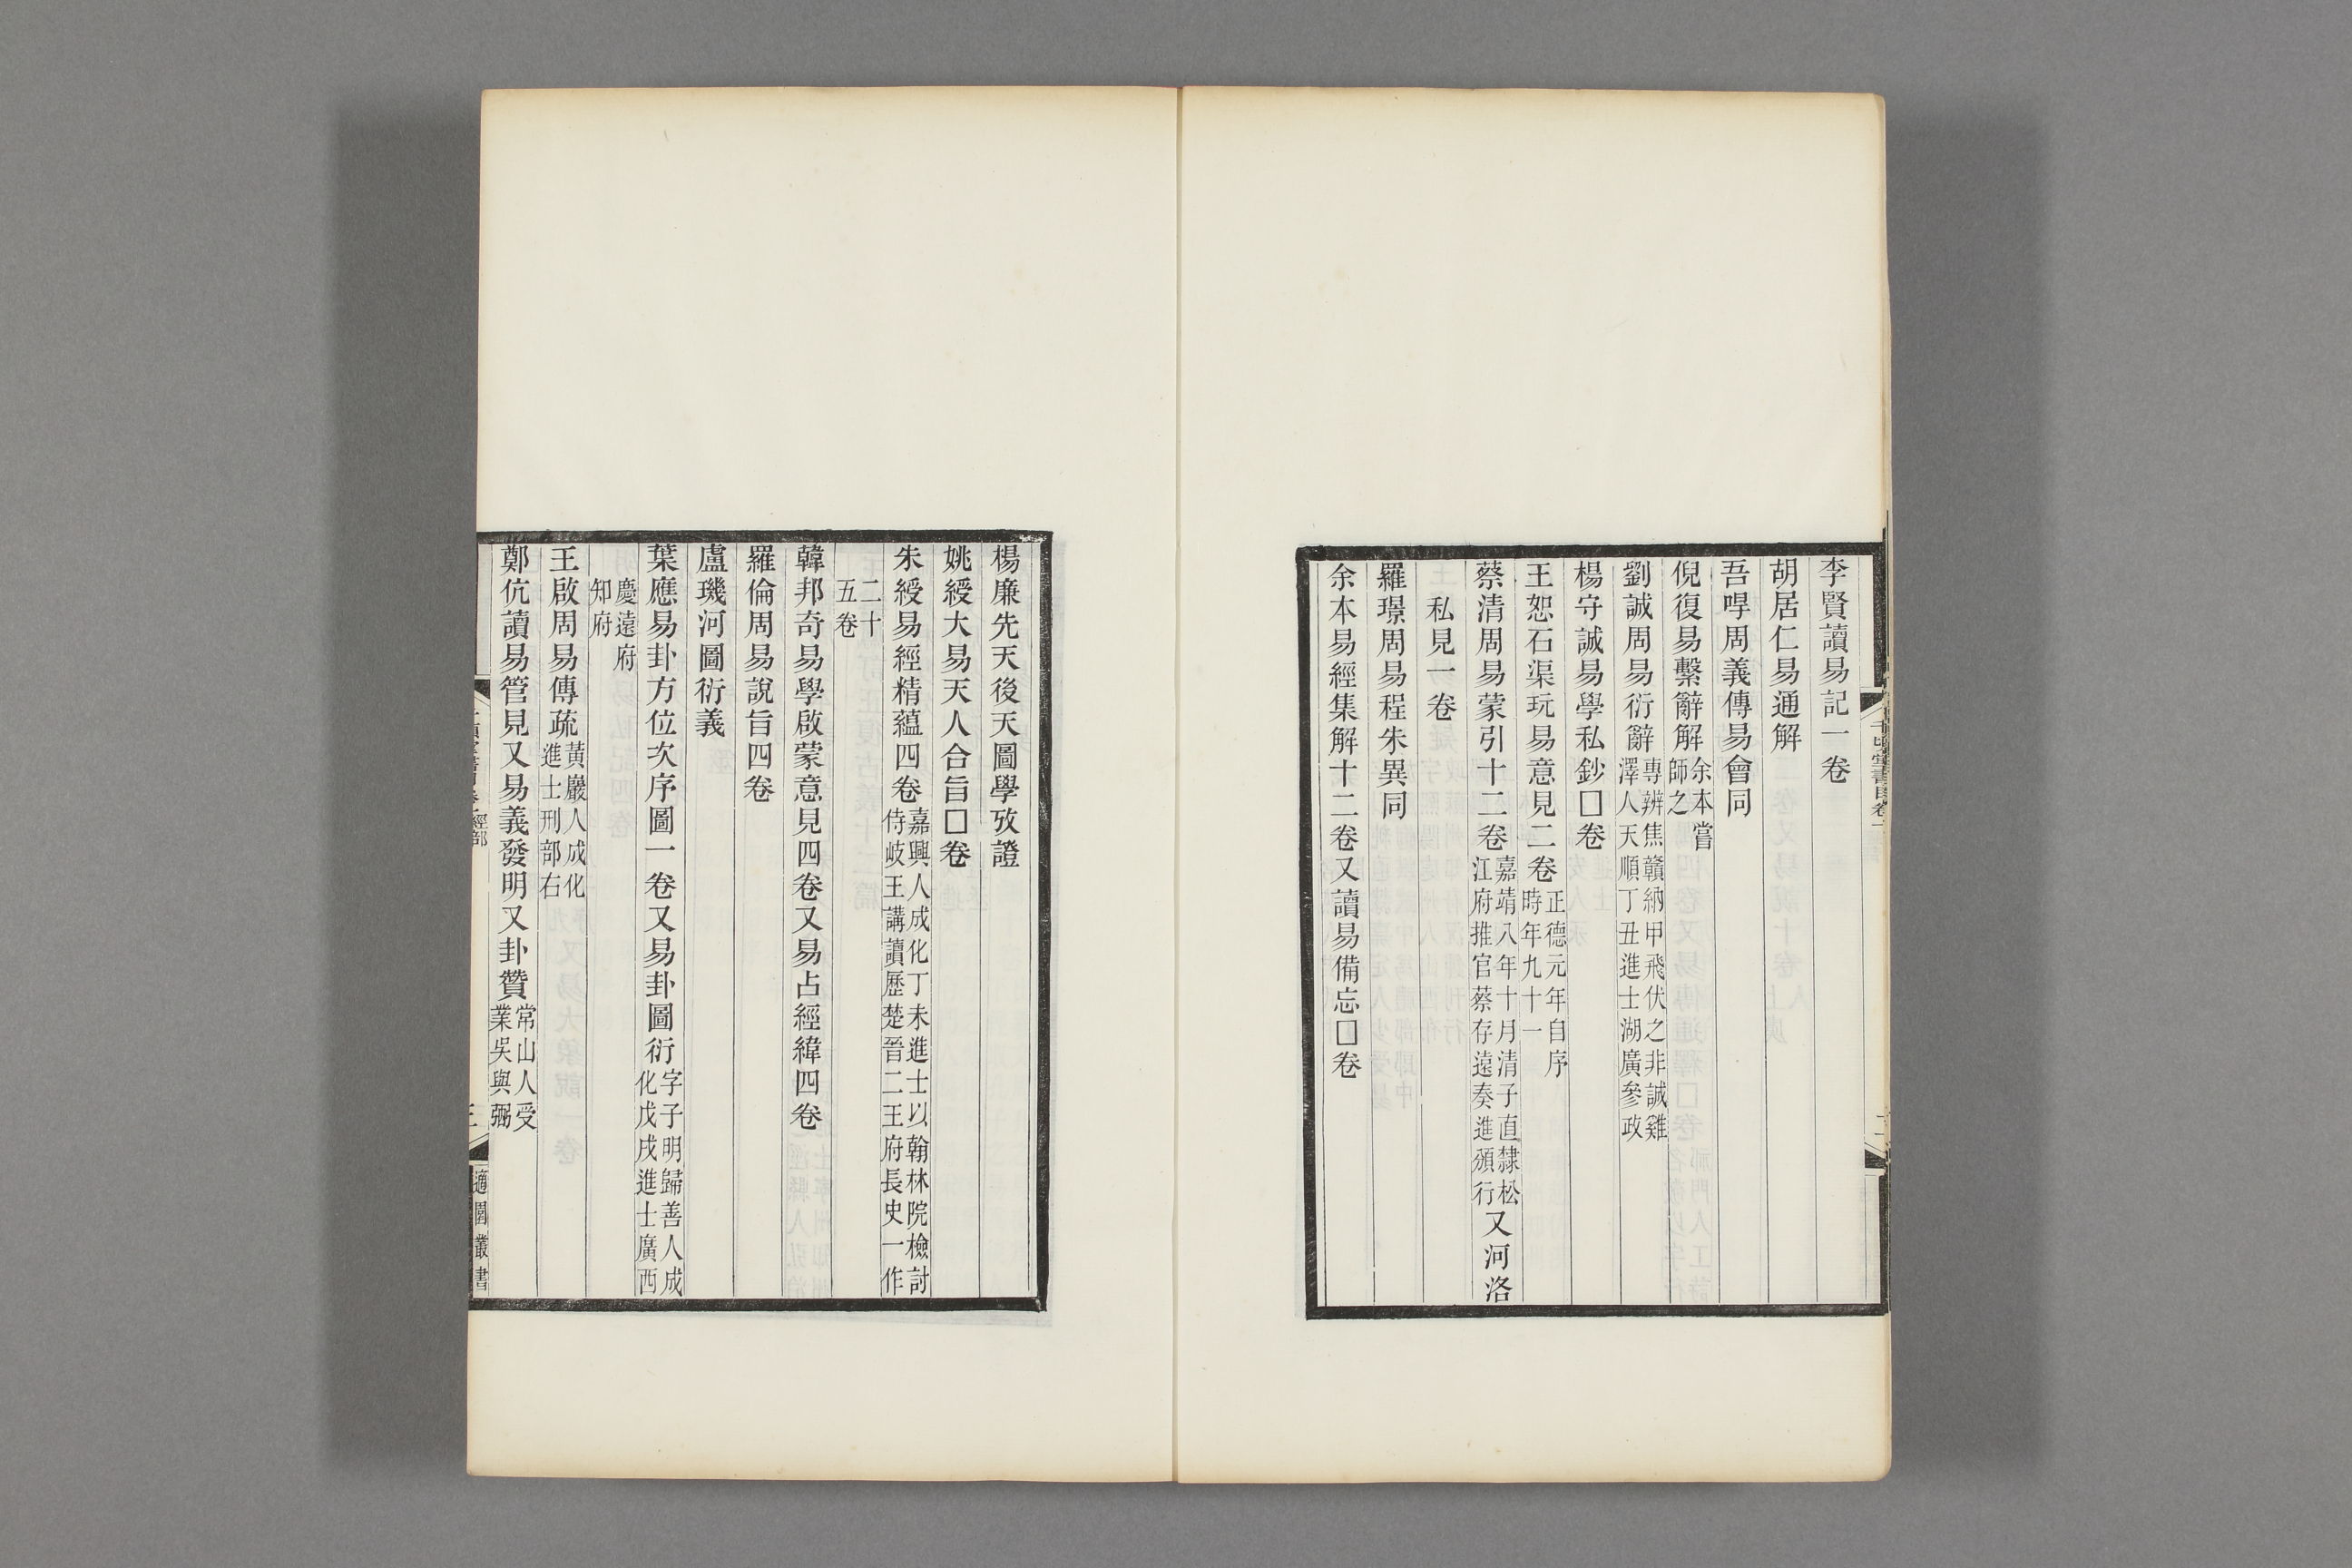 李賢讀易記一卷
胡居仁易通解
吾㖮周義傳易會同
倪復易繫辭解余本嘗師之
劉誠周易衍辭專辨焦贛納甲飛伏之非誠雞澤人天順丁丑進士湖廣參政
楊守誠易學私鈔□卷
王恕石渠玩易意見二卷正德元年自序時年九十一
蔡清周易蒙引十二卷嘉靖八年十月清子直隸松江府推官蔡存遠奏進頒行又河洛
私見一卷
羅璟周易程朱異同
余本易經集解十二卷又讀易備忘□卷
楊廉先天後天圖學攷證
姚綬大易天人合旨□卷
朱綬易經精蘊四卷嘉興人成化丁未進士以翰林院檢討侍岐王講讀歷楚晉二王府長史一作
二十五卷
韓邦奇易學啟蒙意見四卷又易占經緯四卷
羅倫周易說旨四卷
盧璣河圖衍義
葉應易卦方位次序圖一卷又易卦圖衍字子明歸善人成化戊戌進士廣西
慶遠府知府
王啟周易傳疏黃巖人成化進士刑部右
鄭伉讀易管見又易義發明又卦贊常山人受業吳與弼
經部
三
適園叢書